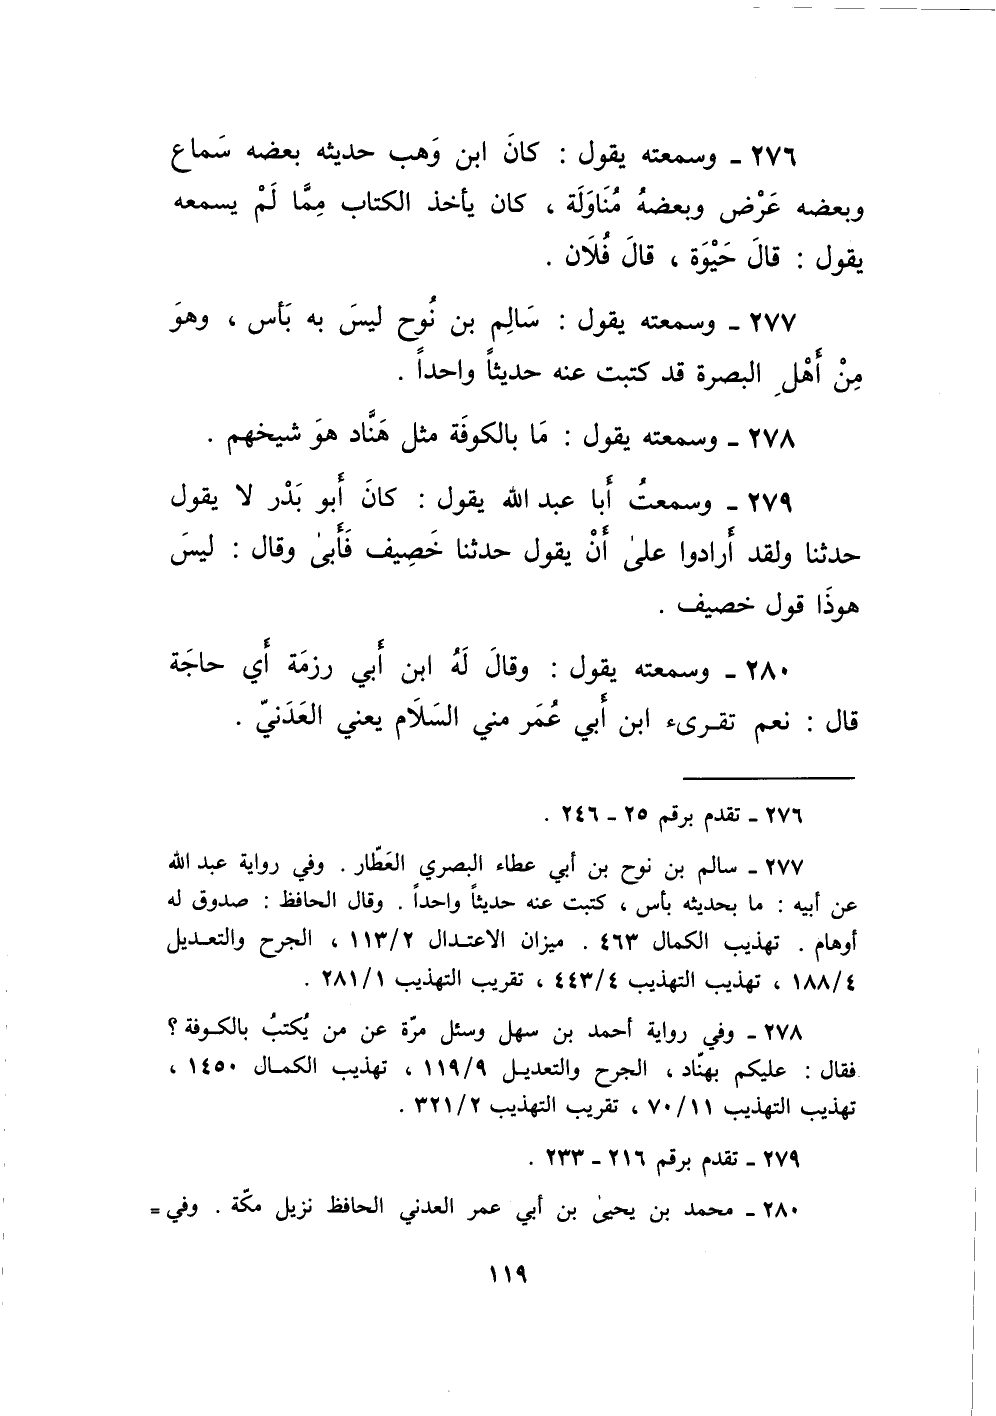 ٢٧٦ ـ وسمعته يقول : كانَ ابن وَهب حديثه بعضه سَماع
وبعضه عَرْض وبعضهُ مُنَاوَلَة ، كان يأخذ الكتاب مِمَّا لَمْ يسمعه
يقول : قالَ حَيْوَة ، قالَ فُلَان .
٢٧٧ ـ وسمعته يقول : سَالِم بن نُوح ليسَ به بَأس ، وهوَ
مِنْ أَهْلِ البصرة قد كتبت عنه حديثاً واحداً .
٢٧٨ ـ وسمعته يقول : مَا بالكوفَة مثل هَنَّاد هوَ شيخهم .
٢٧٩ ـ وسمعتُ أَبا عبد الله يقول : كانَ أَبو بَدْر لا يقول
حدثنا ولقد أَرادوا علىٰ أَنْ يقول حدثنا خَصِيف فَأَبىٰ وقال : ليسَ
هوذَا قول خصيف .
٢٨٠ ـ وسمعته يقول : وقالَ لَهُ ابن أَبي رزمَة أَي حاجَة
قال : نعم تقرىء ابن أَبي عُمَر مني السَلَام يعني العَدَنيّ .
٢٧٦ ـ تقدم برقم ٢٥ ـ ٢٤٦ .
٢٧٧ ـ سالم بن نوح بن أبي عطاء البصري العَطّار . وفي رواية عبد الله
عن أبيه : ما بحديثه بأس ، كتبت عنه حديثاً واحداً . وقال الحافظ : صدوق له
أوهام . تهذيب الكمال ٤٦٣ . ميزان الاعتدال ١١٣/٢ ، الجرح والتعديل
١٨٨/٤ ، تهذيب التهذيب ٤٤٣/٤ ، تقريب التهذيب ٢٨١/١ .
٢٧٨ ـ وفي رواية أحمد بن سهل وسئل مرّة عن من يُكتبُ بالكوفة ؟
فقال : عليكم بهنّاد ، الجرح والتعديل ١١٩/٩ ، تهذيب الكمال ١٤٥٠ ،
تهذيب التهذيب ٧٠/١١ ، تقريب التهذيب ٣٢١/٢ .
٢٧٩ ـ تقدم برقم ٢١٦ ـ ٢٣٣ .
٢٨٠ ـ محمد بن يحيىٰ بن أبي عمر العدني الحافظ نزيل مكّة . وفي =
١١٩